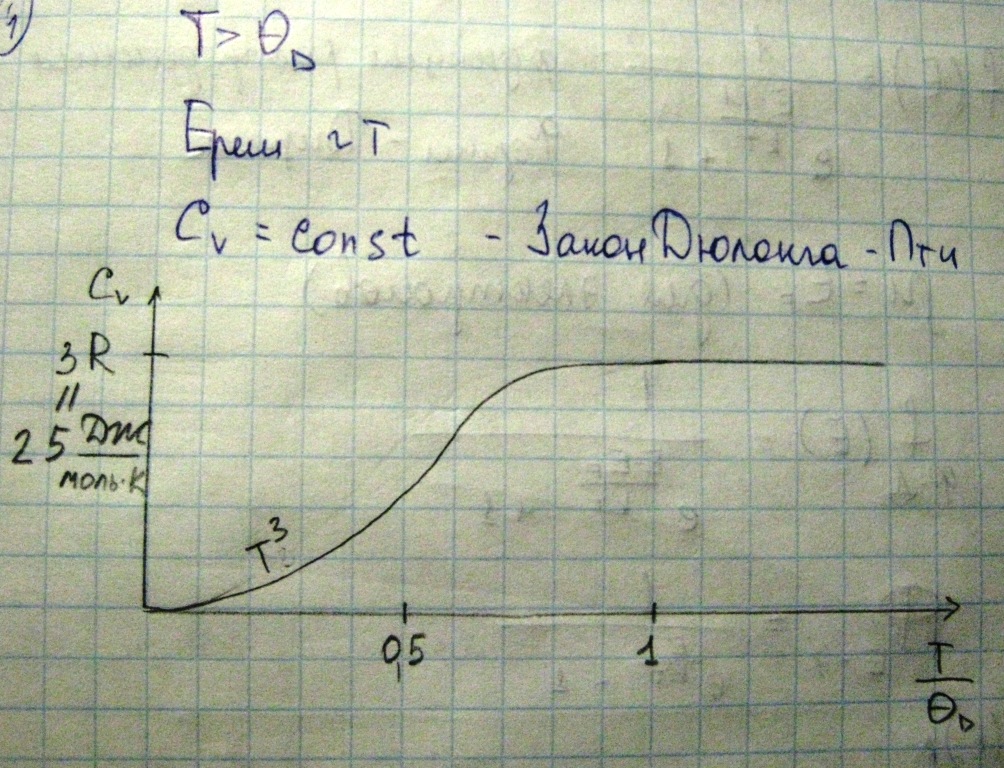 1)
T > Θ_D
Eреш ~ T
C_v = const - Закон Дюлонга - Пти
C_v
3R
=
25 Дж/моль·К
T³
0,5 1
T/Θ_D